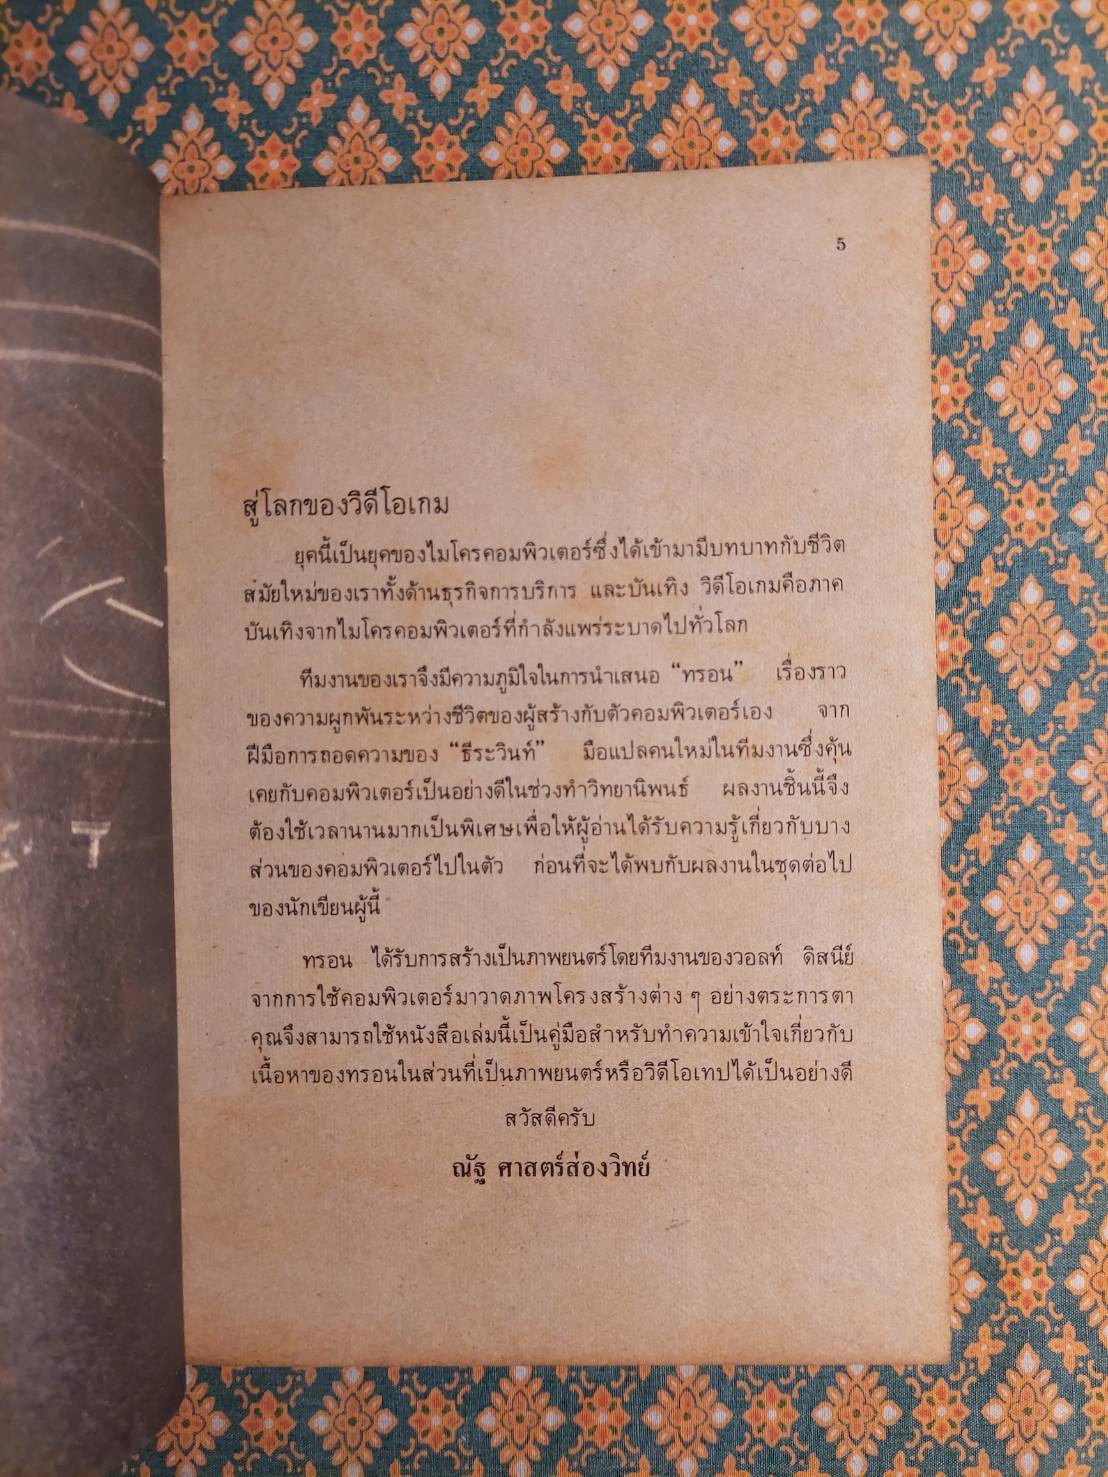 5
สู่โลกของวิดีโอเกม
ยุคนี้เป็นยุคของไมโครคอมพิวเตอร์ซึ่งได้เข้ามามีบทบาทกับชีวิต
สมัยใหม่ของเราทั้งด้านธุรกิจการบริการ และบันเทิง วิดีโอเกมคือภาค
บันเทิงจากไมโครคอมพิวเตอร์ที่กำลังแพร่ระบาดไปทั่วโลก
ทีมงานของเราจึงมีความภูมิใจในการนำเสนอ “ทรอน” เรื่องราว
ของความผูกพันระหว่างชีวิตของผู้สร้างกับตัวคอมพิวเตอร์เอง จาก
ฝีมือการถอดความของ “ธีระวินท์” มือแปลคนใหม่ในทีมงานซึ่งคุ้น
เคยกับคอมพิวเตอร์เป็นอย่างดีในช่วงทำวิทยานิพนธ์ ผลงานชิ้นนี้จึง
ต้องใช้เวลานานมากเป็นพิเศษเพื่อให้ผู้อ่านได้รับความรู้เกี่ยวกับบาง
ส่วนของคอมพิวเตอร์ไปในตัว ก่อนที่จะได้พบกับผลงานในชุดต่อไป
ของนักเขียนผู้นี้
ทรอน ได้รับการสร้างเป็นภาพยนตร์โดยทีมงานของวอลท์ ดิสนีย์
จากการใช้คอมพิวเตอร์มาวาดภาพโครงสร้างต่าง ๆ อย่างตระการตา
คุณจึงสามารถใช้หนังสือเล่มนี้เป็นคู่มือสำหรับทำความเข้าใจเกี่ยวกับ
เนื้อหาของทรอนในส่วนที่เป็นภาพยนตร์หรือวิดีโอเทปได้เป็นอย่างดี
สวัสดีครับ
ณัฐ ศาสตร์ส่องวิทย์